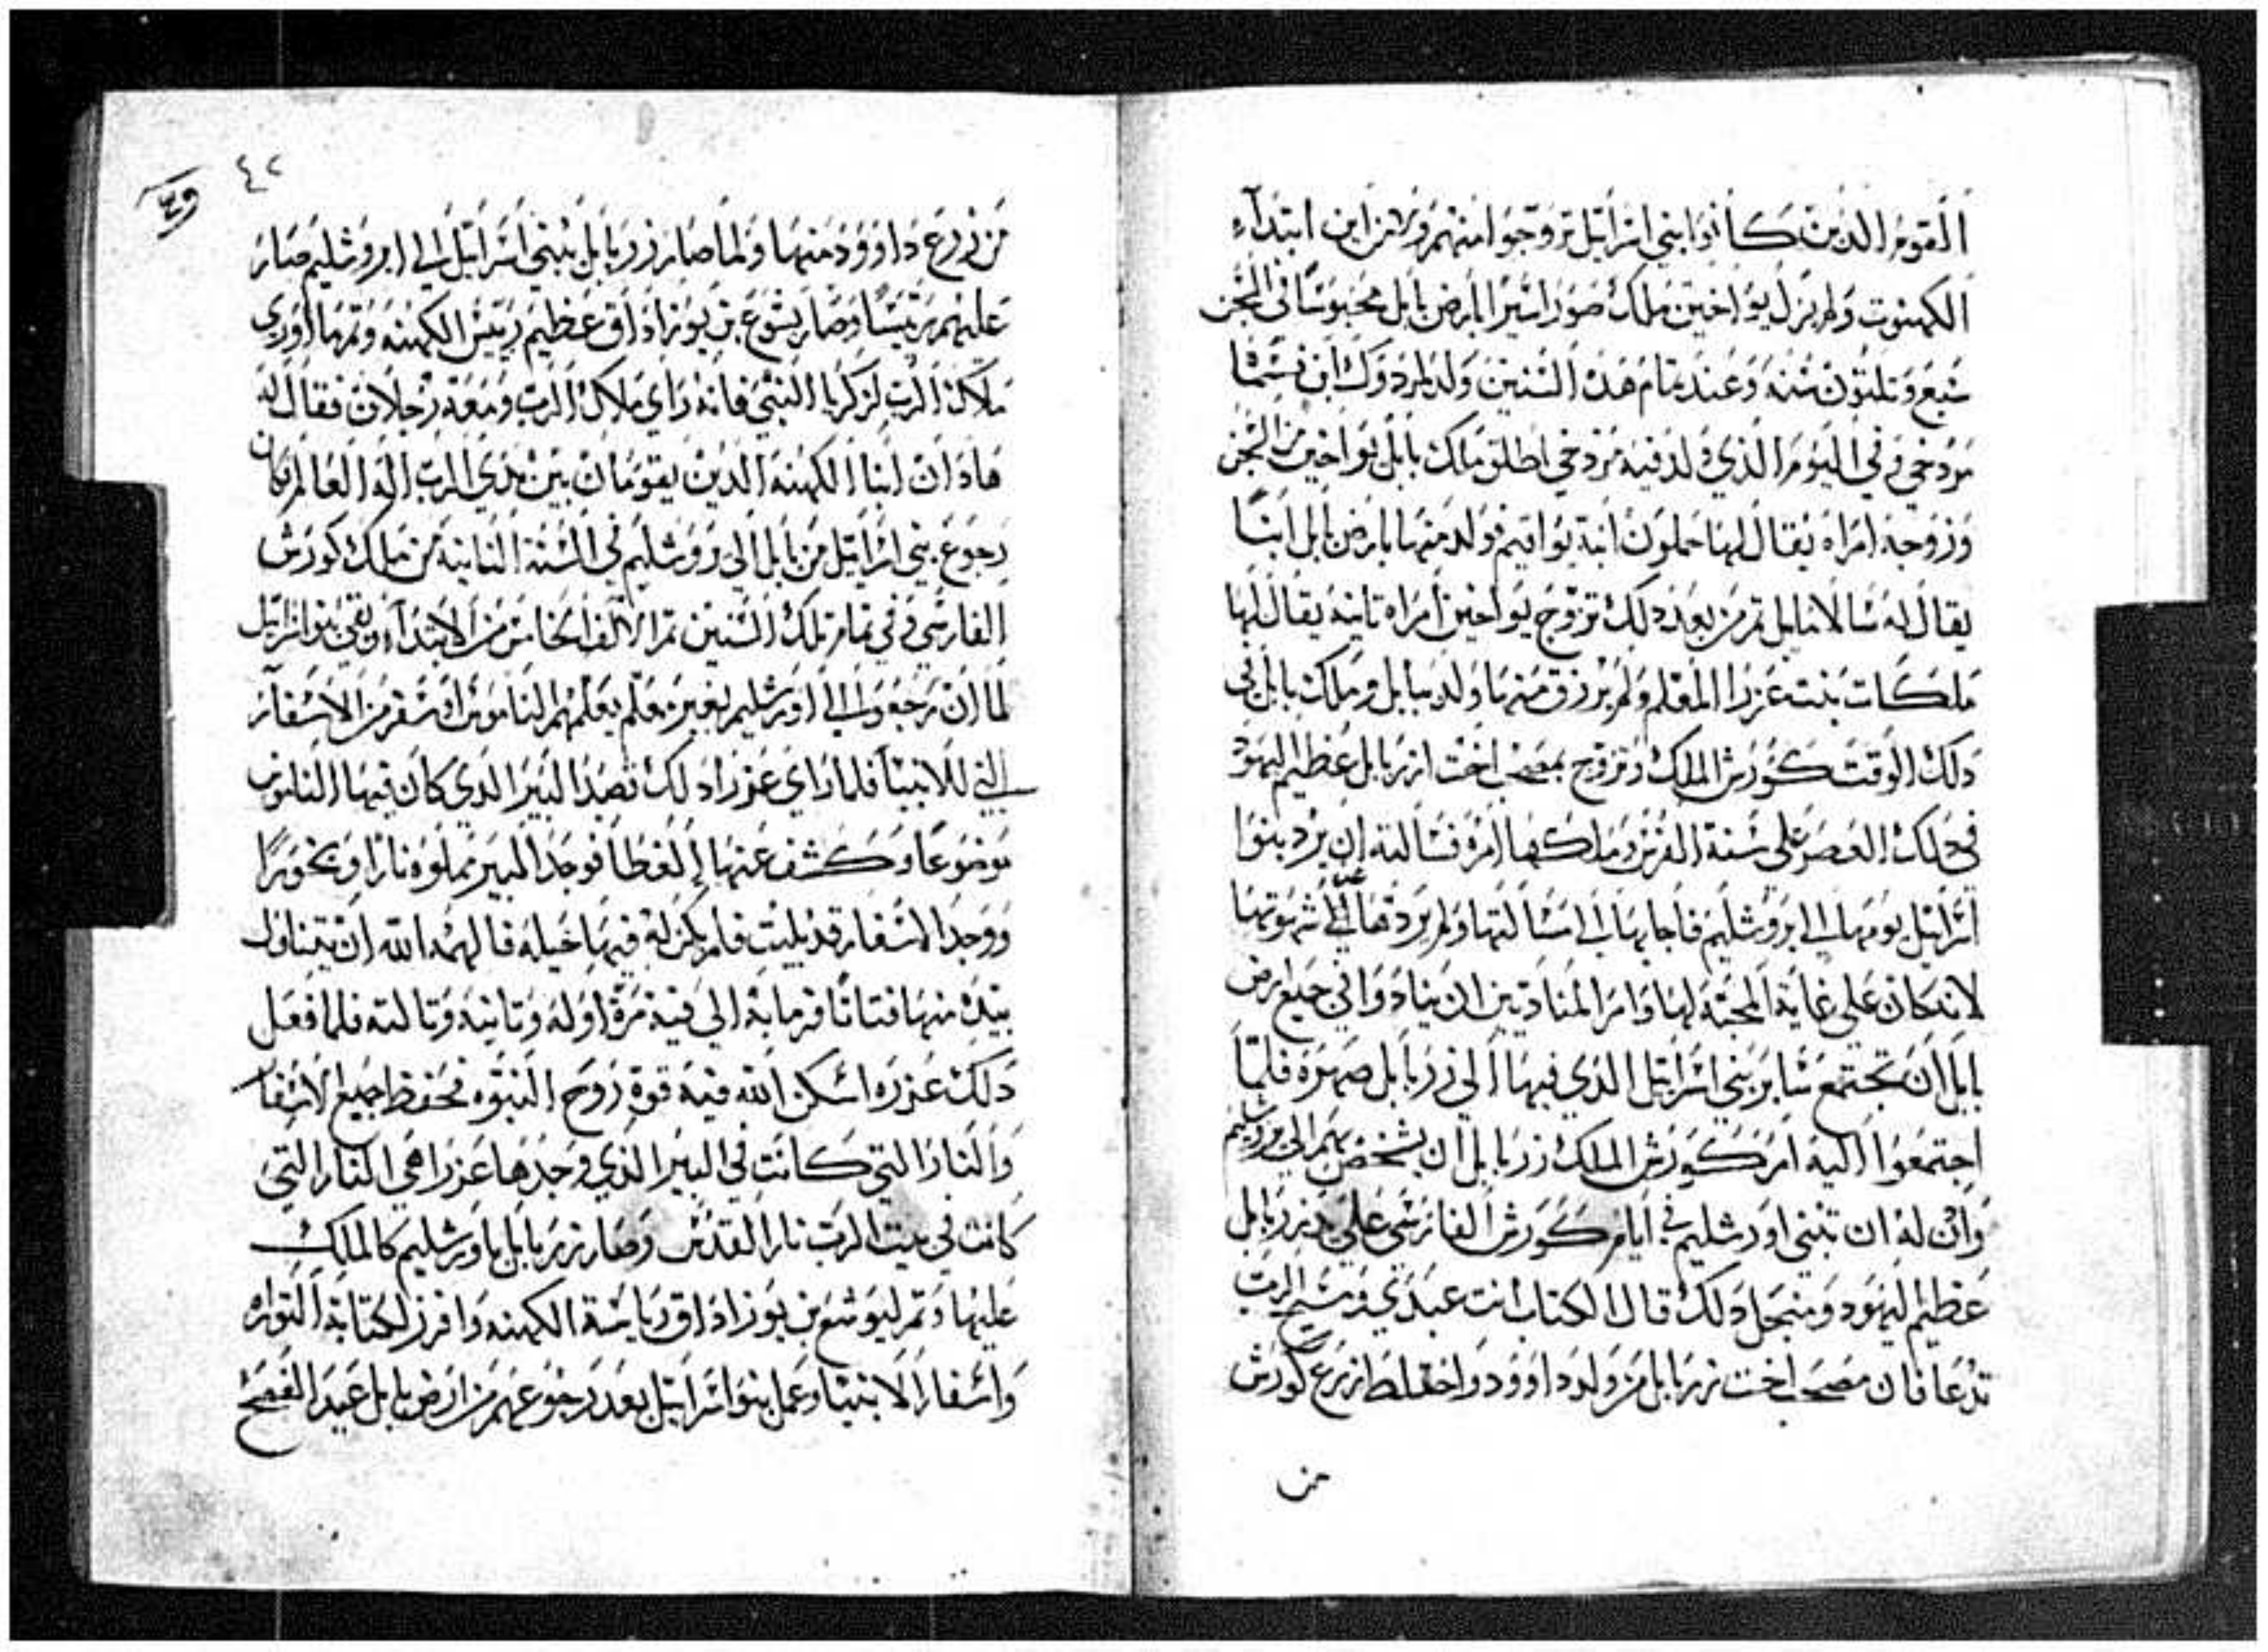 القوم الدين كانوا بني اسرايل تزوجوا منهم ومن اين ابتداء
الكهنوت ولم يزل يواخين ملك صور اسيرا بارض بابل محبوسا في السجن
سبع وتلتون سنه وعند تمام هده السنين ولد لمردوك ابن
مردخي وفي اليوم الذي ولد فيه مردخي اطلق ملك بابل يواخين من السجن
وزوجه امراه يقال لها حملون ابنة يواقيم فولد منها بارض بابل ابنا
يقال له شالاتيايل تم من بعد دلك تزوج يواخين امراه تانيه يقال لها
ملكات بنت عزرا المعلم ولم يرزق منها ولد ببابل وملك بابل في
دلك الوقت كورش الملك وتزوج بمصحب اخت ازربابل عظيم اليهود
في دلك العصر على سنة الفرس وملكها امره فسالته ان يرد بنوا
اسرايل يومها الى ايروشليم فاجابها الى مسالتها ولم يردها عن شهوتها
لانه كان على غاية المحبة لها وامر المنادين ان ينادوا في جميع ارض
بابل ان تجتمع ساير بني اسرايل الذي فيها الى زربابل صهره فلما
اجتمعوا اليه امر كورش الملك زربابل ان يشخص بهم الى وروشليم
وادن له ان تبني اورشليم في ايام كورش الفارسي على يد زربابل
عظيم اليهود ومنجل دلك قال الكتاب انت عبدي ومسيح الرب
تدعا فان مصحب اخت زربابل من ولد داوود واختلط زرع كورش
من
٤٢
من زرع داوود منها ولما صار زربابل ببني اسرايل الى ايروشليم صار
عليهم رئيسا وصار يشوع بن يوزاداق عظيم رييس الكهنه وتمها اوري
ملاك الرب لزكريا النبي فانه راي ملاك الرب ومعه رجلان فقال له
هادان ابنا الكهنه الدين يقومان بين يدي الرب اله العالم وكان
رجوع بني اسرايل من بابل الى وروشليم في السنة التانية من ملك كورش
الفارسي وفي تمام تلك السنين تم الالف الخامس من الابتداء وبقي بنو اسرايل
لما ان رجعوا الى اورشليم بغير معلم يعلمهم الناموس او سفر من الاسفار
التي للانبيا فلما راي عزرا دلك قصد البير الدي كان فيها الناموس
موضوعا وكشف عنها الغطا فوجد البير مملوه نارا وبخورا
ووجد الاسفار قد بليت فلم يكن له فيها حيله فالهمه الله ان يتناول
بيده منها فتاتا فرما به الى فيه مرة اوله وتانيه وتالته فلما فعل
دلك عزره اسكن الله فيه قوة روح النبوه فحفظ جميع الاسفار
والنار التي كانت في البير الذي وجدها عزرا هي النار التي
كانت في بيت الرب نار القدس وصار زربابل باورشليم كالملك
عليها وتم ليوشع بن يوزاداق رياسة الكهنه وافرز لكتابة التوراه
واسفار الانبيا وعمل بنو اسرايل بعد رجوعهم من ارض بابل عيد الفصح